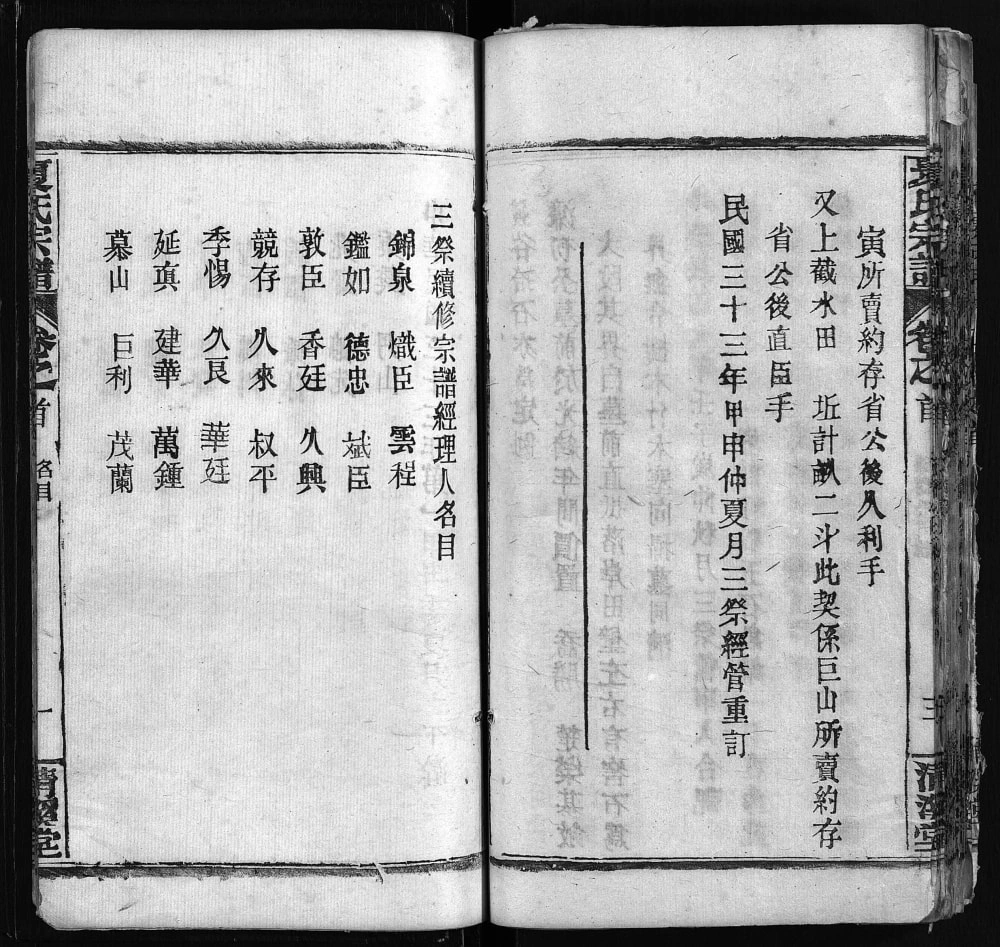 夏氏宗譜 卷之首 三 清溪堂
寅所賣約存省公後久利手
又上截水田 坵計畝二斗此契係巨山所賣約存
省公後直臣手
民國三十三年甲申仲夏月三祭經管重訂
三祭續修宗譜經理人名目
錦泉 熾臣 雲程
鑑如 德忠 斌臣
敦臣 香廷 久興
競存 久來 叔平
季惕 久良 華廷
延真 建華 萬鍾
慕山 巨利 茂蘭
夏氏宗譜 卷之首 名目 一 清溪堂